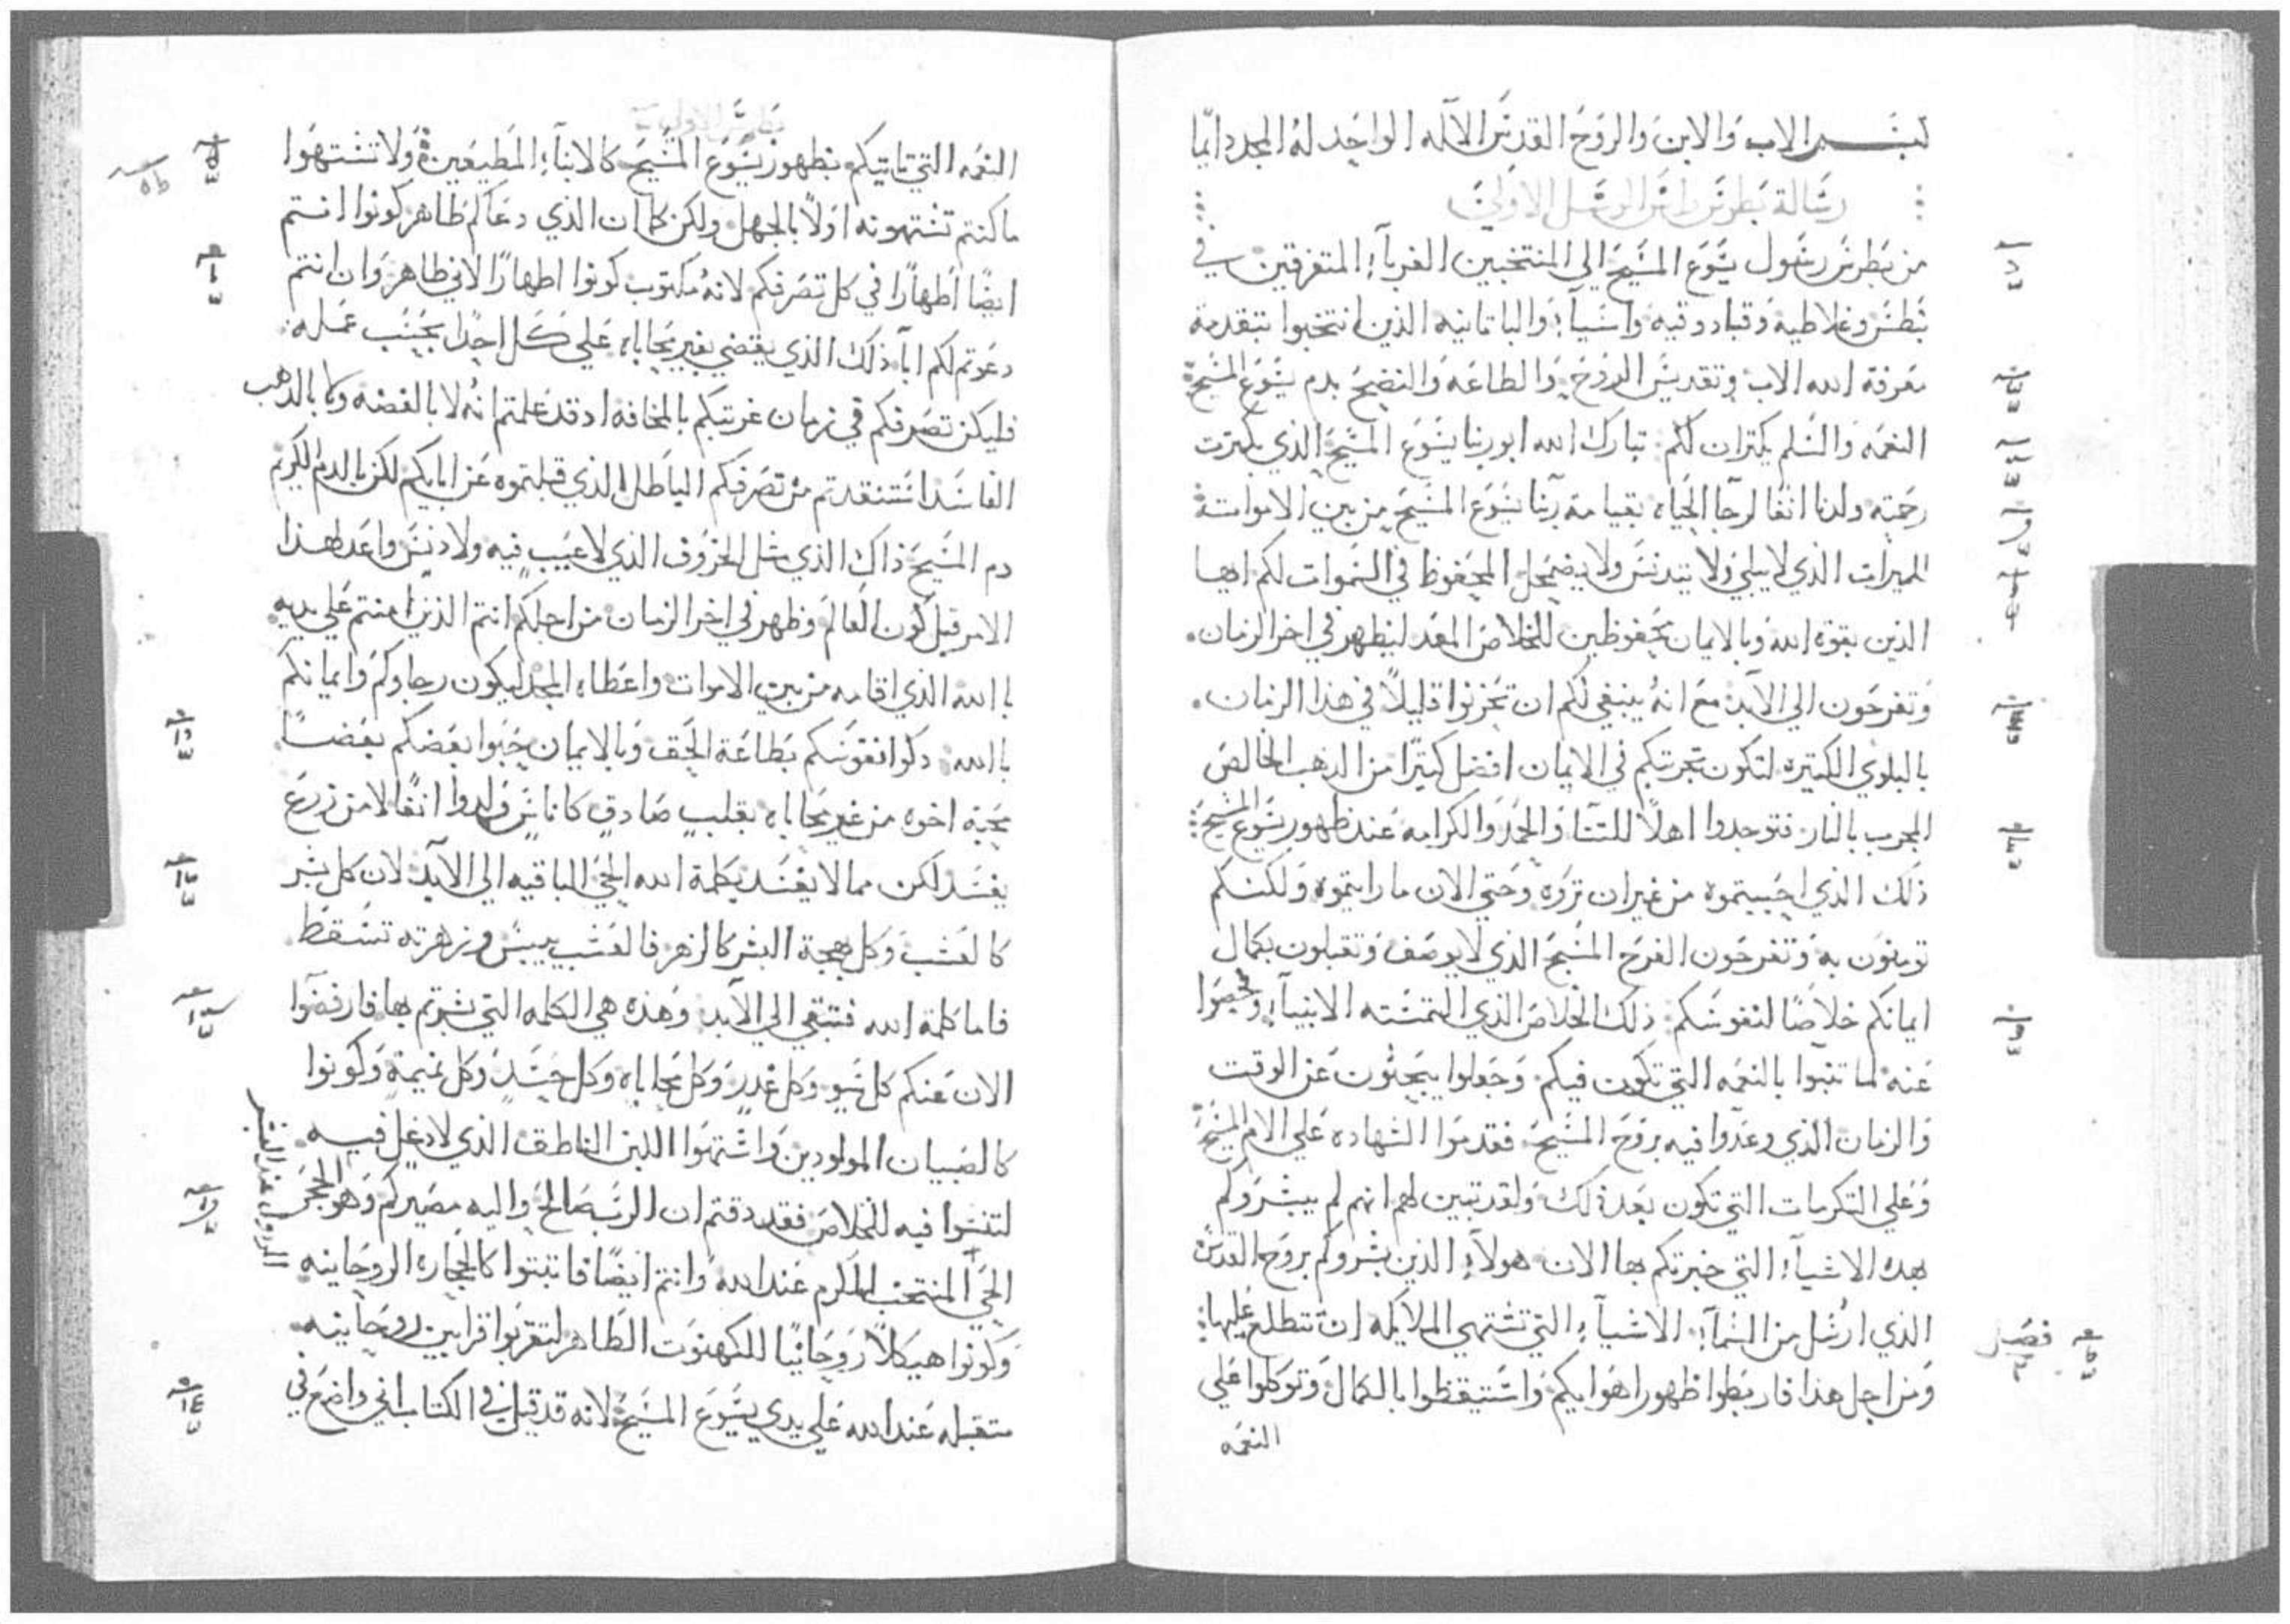 بسم الاب والابن والروح القدس الاله الواحد له المجد دايما
رسالة بطرس راس الرسل الاولي
من بطرس رسول يسوع المسيح الي المنتخبين الغربآء المتفرقين في
بنطس وغلاطيه وقبادوقيه واسيآء والباتانيه الذين انتخبوا بتقدمة
معرفة الله الاب وتقديس الروح والطاعه والنضيح بدم يسوع المسيح
النعمه والسلم يكتران لكم تبارك الله ابو ربنا يسوع المسيح الذي بكترت
رحمته ولدنا انفا لرجا الحياه بقيامة ربنا يسوع المسيح من بين الاموات
للميرات الذي لا يبلي ولا يتدنس ولا يضمحل المحفوظ في السموات لكم ايها
الذين بقوة الله وبالايمان محفوظين للخلاص المعد ليظهر في اخر الزمان
وتفرحون الي الابد مع انه ينبغي لكم ان تحزنوا قليلاً في هذا الزمان
بالبلوي الكتيره لتكون تجربتكم في الايمان افضل كتيرا من الدهب الخالص
المجرب بالنار فتوجدوا اهلاً للتنا والحمد والكرامه عند ظهور يسوع المسيح
ذلك الذي احببتموه من غير ان تروه وحتي الان ما رايتموه ولكنكم
تومنون به وتفرحون الفرح المسبح الذي لا يوصف وتقبلون بكمال
ايمانكم خلاصا لنفوسكم ذلك الخلاص الذي التمسته الانبيآء وفحصوا
عنه لما تنبوا بالنعمه التي تكون فيكم وجعلوا يبحثون عن الوقت
والزمان الذي وعدوا فيه بروح المسيح فقدموا الشهاده علي الام المسيح
وعلي التكرمات التي تكون بعد ذلك ولقد تبين لهم انهم لم يبشروكم
بهده الاشيآء التي خبرتكم بها الان هولآء الذين بشروكم بروح القدس
الذي ارسل من السمآء الاشيآء التي تشتهي الملايكه ان تتطلع عليها
فصل
ومن اجل هذا فاربطوا ظهور اهوايكم واستيقظوا بالكمال وتوكلوا علي
النعمه
بطرس الاولي
النعمه التي تاتيكم بظهور يسوع المسيح كالابنآء المطيعين ولا تشتهوا
ما كنتم تشتهونه اولاً بالجهل ولكن كما ان الذي دعاكم طاهر كونوا انتم
ايضا اطهارًا في كل تصرفكم لانه مكتوب كونوا اطهارًا لاني طاهر وان انتم
دعوتم لكم ابآ ذلك الذي يقضي بغير محاباه علي كل احد بحسب عمله
فليكن تصرفكم في زمان غربتكم بالمخافه اد قد علمتم انه لا بالفضه ولا بالدهب
الفاسد استنقدتم من تصرفكم الباطل الذي قبلتموه عن ابايكم لكن بالدم الكريم
دم المسيح ذاك الذي مثل الخروف الذي لا عيب فيه ولا دنس واعد لهذا
الامر قبل كون العالم وظهر في اخر الزمان من اجلكم انتم الذين امنتم علي يديه
بالله الذي اقامه من بين الاموات واعطاه المجد ليكون رجاوكم وايمانكم
بالله دكوا نفوسكم بطاعة الحق وبالايمان حبوا بعضكم بعضاً
محبة اخوه من غير محاباه بقلب صادق كاناس ولدوا انفا لا من زرع
يفسد لكن مما لا يفسد بكلمة الله الحي الباقيه الي الابد لان كل بشر
كالعشب وكل بهجة البشر كالزهر فالعشب ييبس وزهرته تسقط
فاما كلمة الله فتبقي الي الابد وهذه هي الكلمه التي بشرتم بها فارفضوا
الان عنكم كل سو وكل غدر وكل محاباه وكل حسد وكل نميمة وكونوا
كالصبيان المولودين واشتهوا اللبن الناطق الذي لا دغل فيه
لتنشوا فيه للخلاص فقد دقتم ان الرب صالح واليه مصيركم وهو الحجر
المردول عند البشر
الحي المنتخب المكرم عند الله وانتم ايضا فاتبتوا كالحجاره الروحانيه
وكونوا هيكلاً روحانيا للكهنوت الطاهر لتقربوا قرابين روحانيه
متقبله عند الله علي يدي يسوع المسيح لانه قد قيل في الكتاب اني واضع في